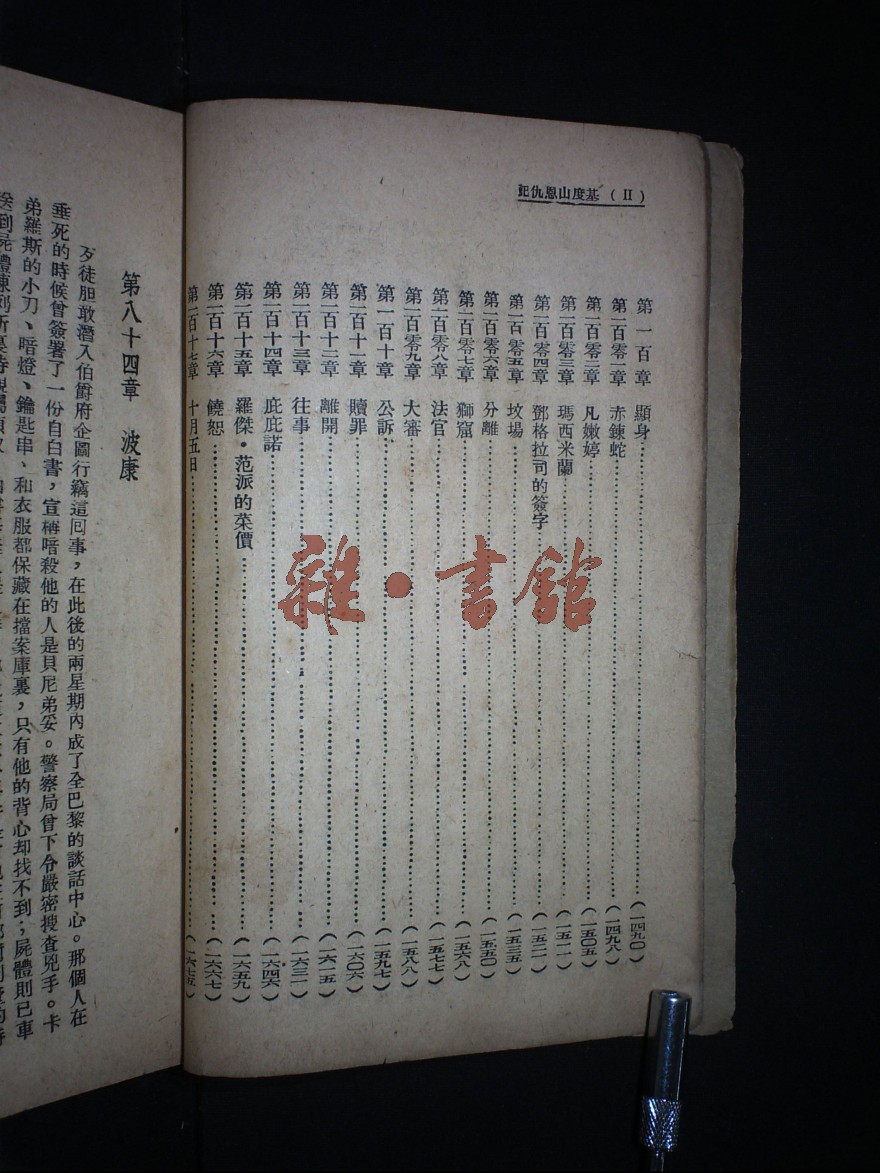 基度山恩仇記 （II）
第一百章 顯身……（一四九〇）
第一百零一章 赤鍊蛇……（一四九八）
第一百零二章 凡嫩婷……（一五〇五）
第一百零三章 瑪西米蘭……（一五一一）
第一百零四章 鄧格拉司的簽字……（一五二一）
第一百零五章 坟場……（一五三五）
第一百零六章 分離……（一五五〇）
第一百零七章 獅窟……（一五六八）
第一百零八章 法官……（一五七七）
第一百零九章 大審……（一五八八）
第一百十章 公訴……（一五九七）
第一百十一章 贖罪……（一六〇六）
第一百十二章 離開……（一六一五）
第一百十三章 往事……（一六三一）
第一百十四章 庇庇諾……（一六四六）
第一百十五章 羅傑·范派的菜價……（一六五九）
第一百十六章 饒恕……（一六六七）
第一百十七章 十月五日……（一六七五）
第八十四章 波康
歹徒胆敢潛入伯爵府企圖行竊這回事，在此後的兩星期內成了全巴黎的談話中心。那個人在
垂死的時候曾簽署了一份自白書，宣稱暗殺他的人是貝尼弟妥。警察局曾下令嚴密搜査兇手。卡
弟羅斯的小刀、暗燈、鑰匙串、和衣服都保藏在擋案庫裏，只有他的背心却找不到；屍體則已車
送到屍體陳列所裏待親屬領取
雜·書館